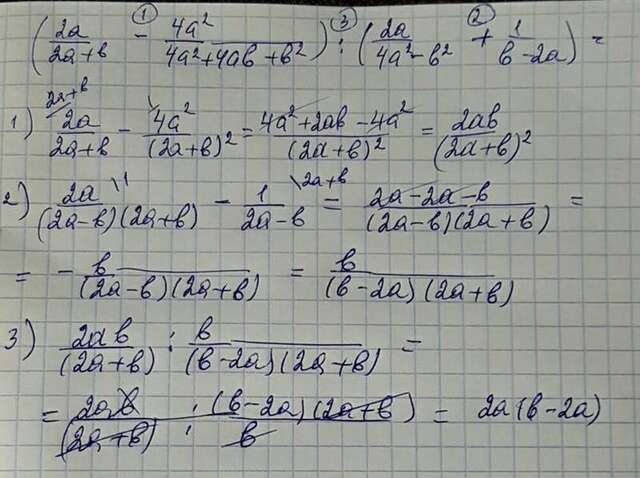 (2a/(2a+b) ① − 4a²/(4a²+4ab+b²)) ③ : (2a/(4a²−b²) ② + 1/(b−2a)) =
1) 2a/(2a+b) \2a+b − 4a²/(2a+b)² = (4a²+2ab−4a²)/(2a+b)² = 2ab/(2a+b)²
2) 2a/((2a−b)(2a+b)) \1 − 1/(2a−b) \2a+b = (2a−2a−b)/((2a−b)(2a+b)) =
= − b/((2a−b)(2a+b)) = b/((b−2a)(2a+b))
3) 2ab/(2a+b) : b/((b−2a)(2a+b)) =
= 2ab/(2a+b) · (b−2a)(2a+b)/b = 2a(b−2a)